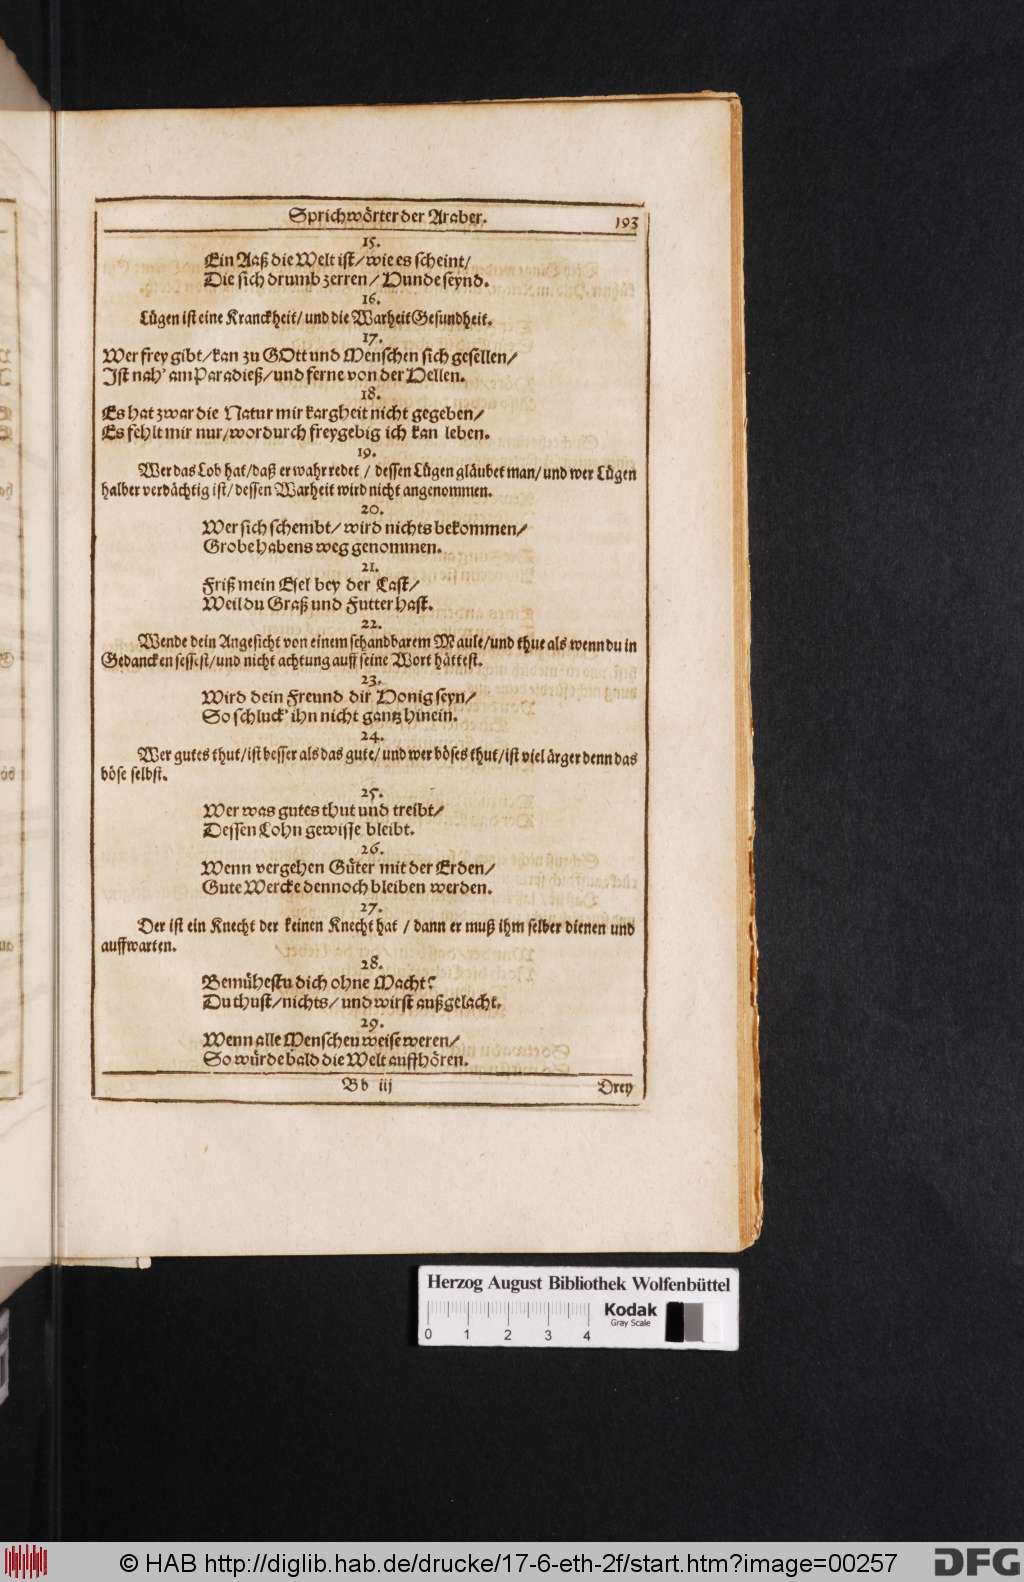 Sprichwörter der Araber.
193
15.
Ein Aaß die Welt ist/ wie es scheint/
Die sich drumb zerren/ Hunde seynd.
16.
Lügen ist eine Kranckheit/ und die Warheit Gesundheit.
17.
Wer frey gibt/ kan zu GOtt und Menschen sich gesellen/
Ist nah' am Paradieß/ und ferne von der Hellen.
18.
Es hat zwar die Natur mir kargheit nicht gegeben/
Es fehlt mir nur/ wordurch freygebig ich kan leben.
19.
Wer das Lob hat/ daß er wahr redet / dessen Lügen gläubet man/ und wer Lügen
halber verdächtig ist/ dessen Warheit wird nicht angenommen.
20.
Wer sich schembt/ wird nichts bekommen/
Grobe habens weg genommen.
21.
Friß mein Esel bey der Last/
Weil du Graß und Futter hast.
22.
Wende dein Angesicht von einem schandbarem Maule/ und thue als wenn du in
Gedancken sessest/ und nicht achtung auff seine Wort hättest.
23.
Wird dein Freund dir Honig seyn/
So schluck' ihn nicht gantz hinein.
24.
Wer gutes thut/ ist besser als das gute/ und wer böses thut/ ist viel ärger denn das
böse selbst.
25.
Wer was gutes thut und treibt/
Dessen Lohn gewisse bleibt.
26.
Wenn vergehen Güter mit der Erden/
Gute Wercke dennoch bleiben werden.
27.
Der ist ein Knecht der keinen Knecht hat / dann er muß ihm selber dienen und
auffwarten.
28.
Bemühestu dich ohne Macht?
Du thust/ nichts/ und wirst außgelacht.
29.
Wenn alle Menschen weise weren/
So würde bald die Welt auffhören.
Bb iij
Drey
Herzog August Bibliothek Wolfenbüttel
0 1 2 3 4
Kodak
Gray Scale
© HAB http://diglib.hab.de/drucke/17-6-eth-2f/start.htm?image=00257
DFG